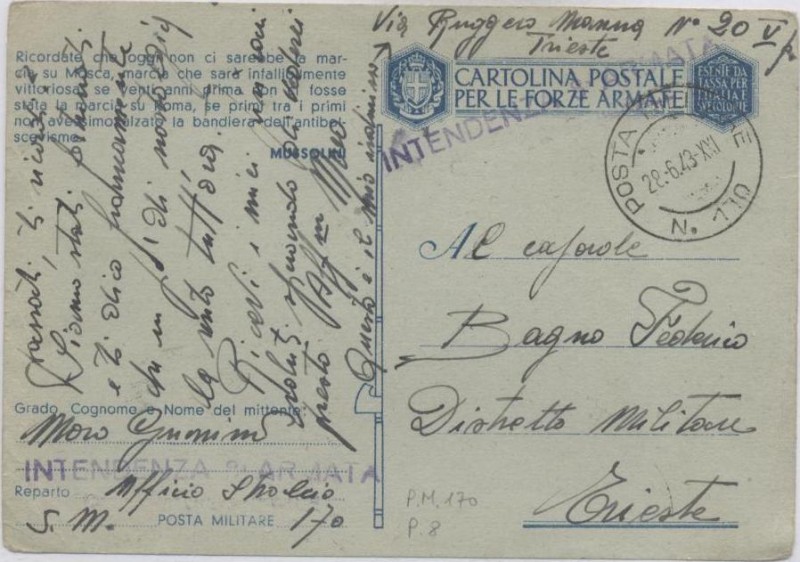 Via Ruggero Manna N° 20 V p
Trieste
Ricordate che oggi non ci sarebbe la mar-
cia su Mosca, marcia che sarà infallibilmente
vittoriosa, se venti anni prima non ci fosse
stata la marcia su Roma, se primi tra i primi
non avessimo alzato la bandiera dell'antibol-
scevismo.
MUSSOLINI
CARTOLINA POSTALE
PER LE FORZE ARMATE
ESENTE DA
TASSA PER
INTENDENZA ARMATA
POSTA MILITARE
28-6.43-XXI
N. 170
Al caporale
Bagno Federico
Distretto Militare
Trieste
passati, ti
siamo stati
e ti dico francamente
che un po' di nostalgia
la sento tutt'ora.
Ricevi i miei
saluti
presto
Questo è il mio indirizzo
Grado, Cognome e Nome del mittente
Moro
INTENDENZA 8ª ARMATA
Reparto Ufficio Stralcio
S. M. POSTA MILITARE 170
P.M. 170
P. 8